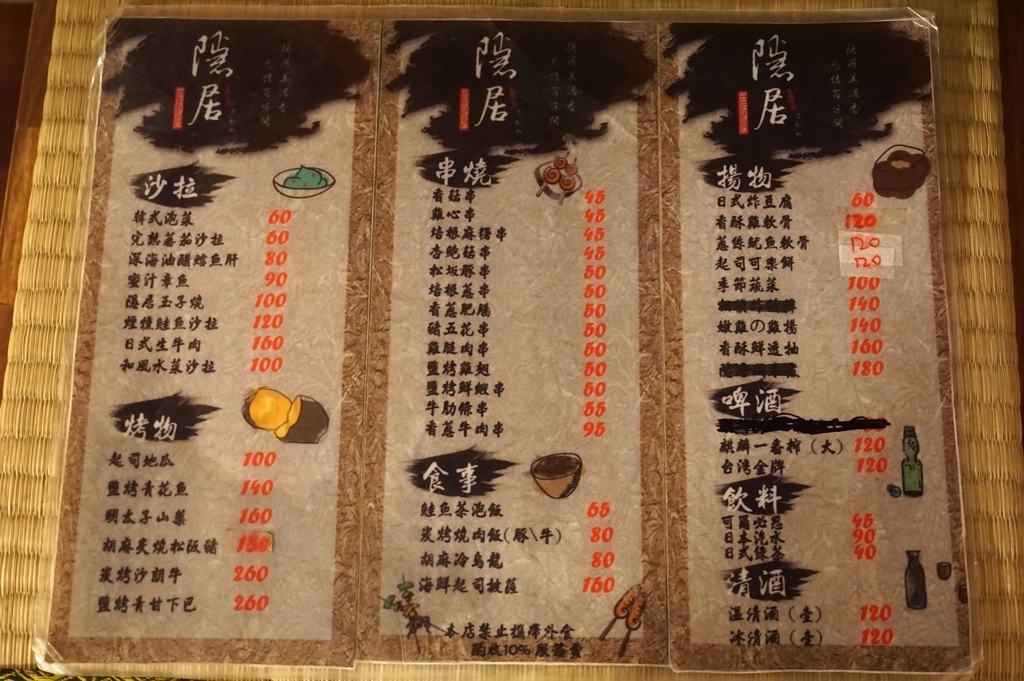 隱居
沙拉
韓式泡菜 60
完熟蕃茄沙拉 60
深海油醋鱈魚肝 80
蜜汁章魚 90
隱居玉子燒 100
煙燻鮭魚沙拉 120
日式生牛肉 160
和風水菜沙拉 100
烤物
起司地瓜 100
鹽烤青花魚 140
明太子山藥 160
胡麻炙燒松阪豬
炭烤沙朗牛 260
鹽烤青甘下巴 260
隱居
串燒
香菇串 45
雞心串 45
培根麻糬串 45
杏鮑菇串 45
松坂豚串 50
培根蔥串 50
香蔥肥腸 50
豬五花串 50
雞腿肉串 50
鹽烤雞翅 50
鹽烤鮮蝦串 50
牛肋條串 55
香蔥牛肉串 95
食事
鮭魚茶泡飯 65
炭烤燒肉飯(豚\牛) 80
胡麻冷烏龍 80
海鮮起司披薩 160
本店禁止攜帶外食
酌收10%服務費
隱居
揚物
日式炸豆腐 60
香酥雞軟骨 120
蔥絲魷魚軟骨 120
起司可樂餅 120
季節蔬菜 100
140
嫩雞の雞揚 140
香酥鮮透抽 160
180
啤酒
麒麟一番搾(大) 120
台灣金牌 120
飲料
可爾必思 45
日本汽水 90
日式綠茶 40
清酒
溫清酒(壹) 120
冰清酒(壹) 120